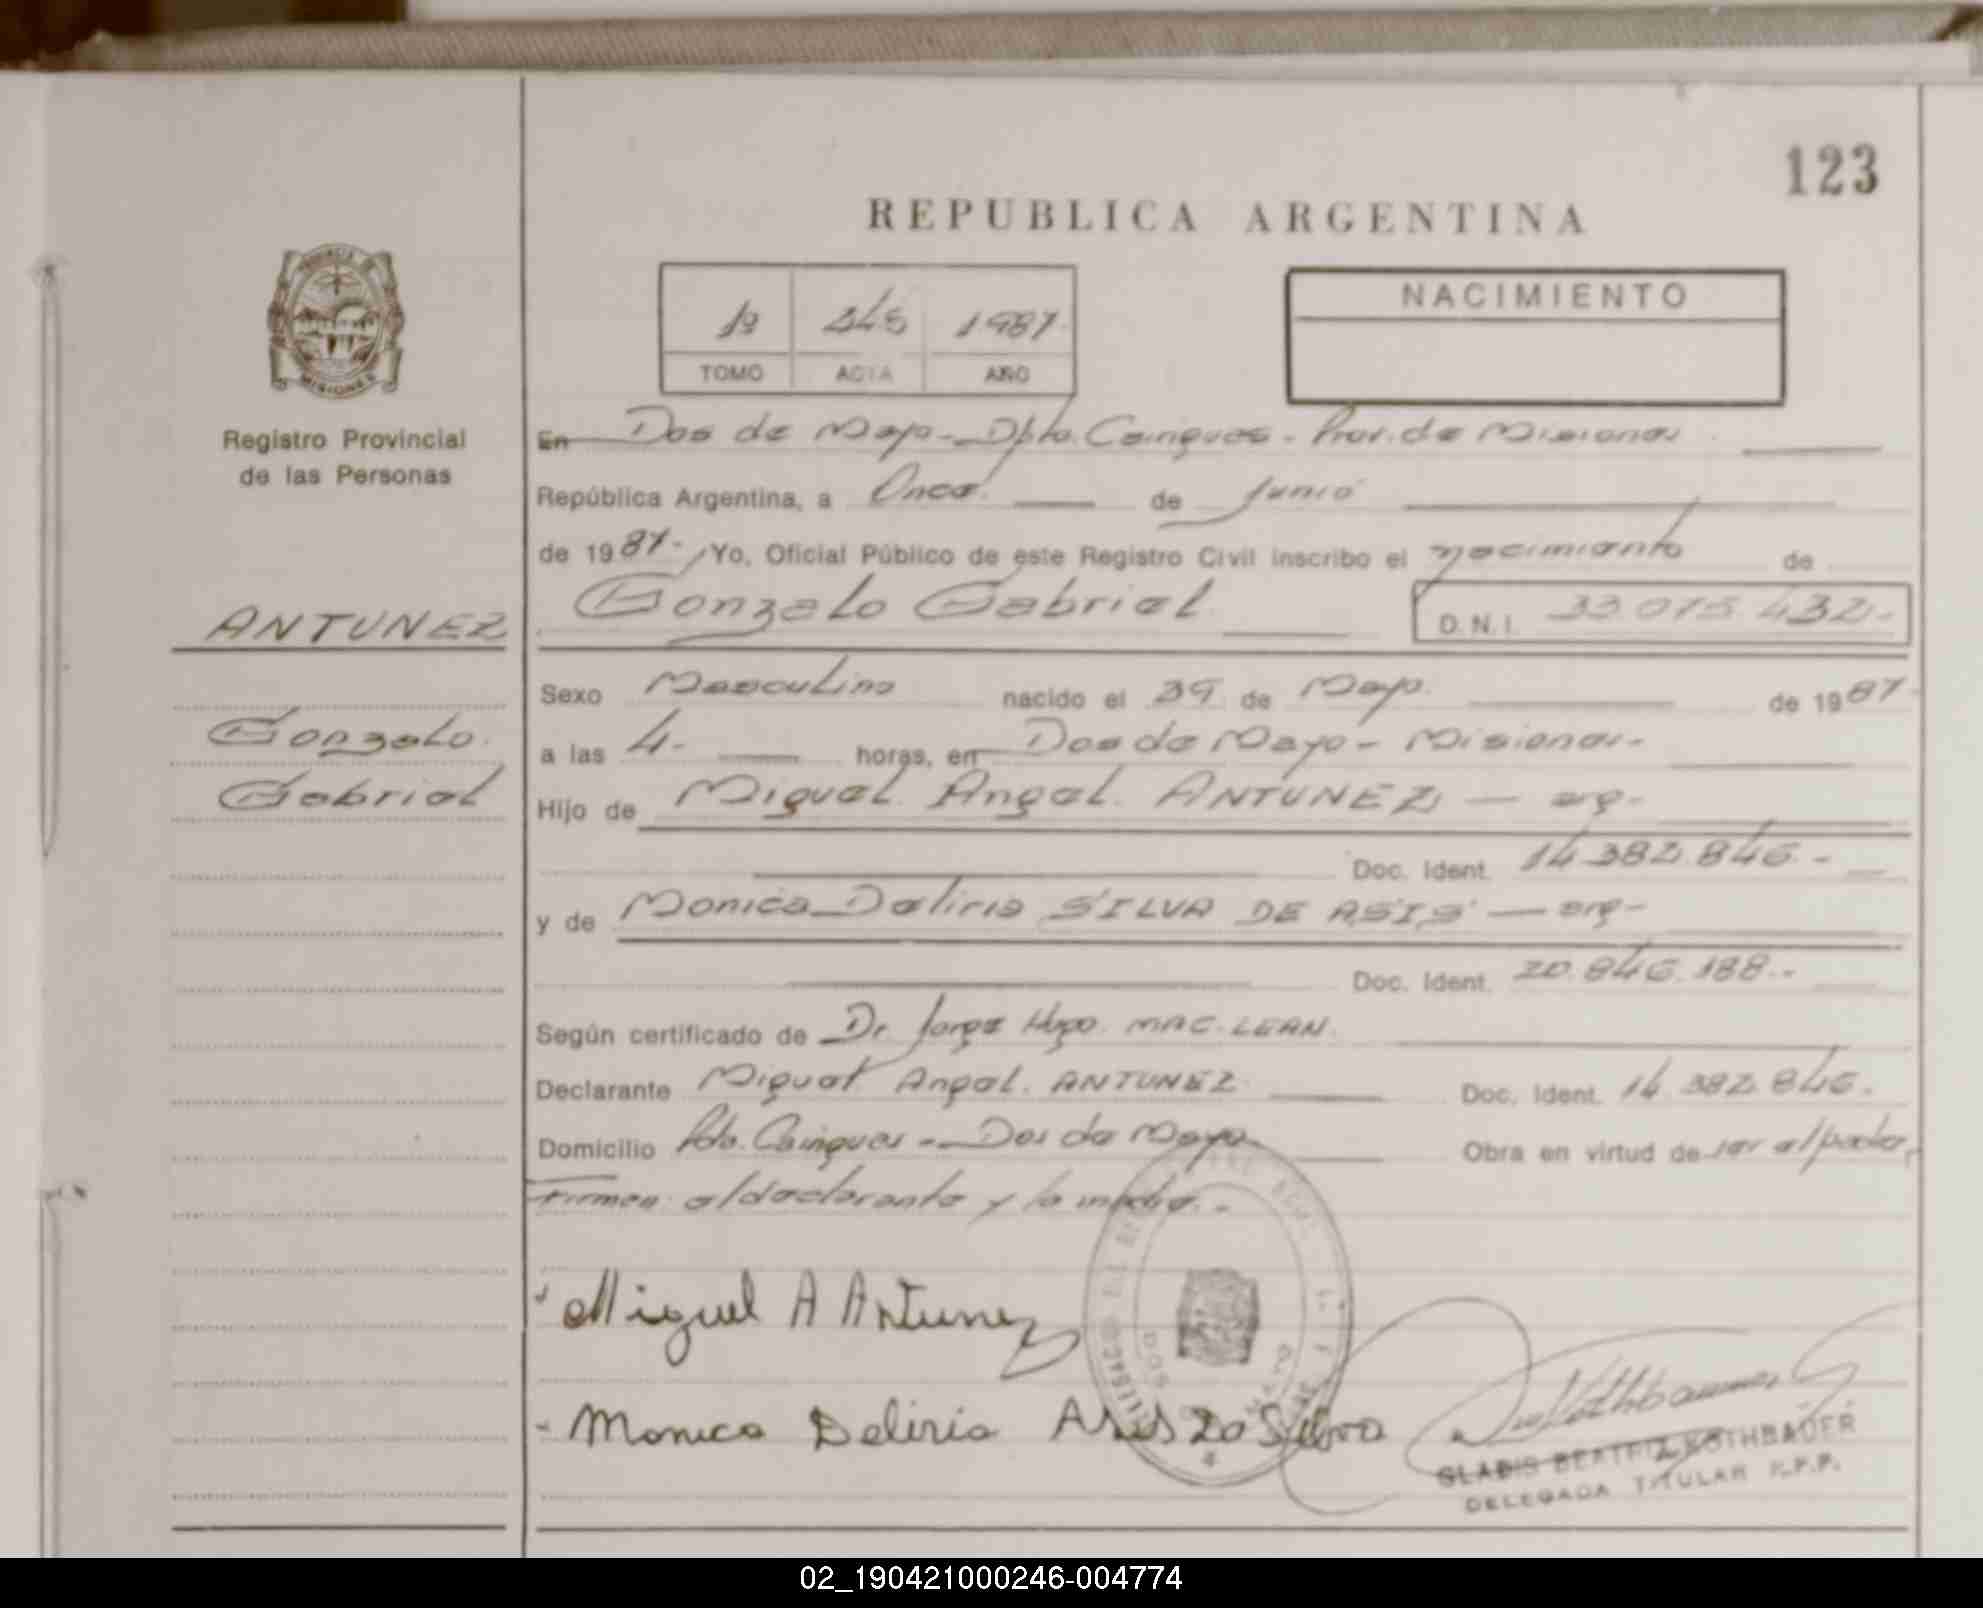 123
REPUBLICA ARGENTINA
NACIMIENTO
1º 345 1987.
TOMO ACTA AÑO
Registro Provincial
de las Personas
En Dos de Mayo - Dpto. Cainguas - Prov. de Misiones
República Argentina, a Once. de Junio
de 1987.- Yo, Oficial Público de este Registro Civil inscribo el nacimiento de
ANTUNEZ
Gonzalo Gabriel D.N.I. 33.075.432.-
Gonzalo
Gabriel
Sexo Masculino nacido el de Mayo. de 1987.
a las 4.- horas, en Dos de Mayo - Misiones.-
Hijo de Miguel Angel ANTUNEZ — arg.-
Doc. Ident. 14.382.846.-
y de Monica Deliria SILVA DE ASIS — arg.-
Doc. Ident. 20.846.188.-
Según certificado de Dr. Jorge Hugo MAC LEAN.
Declarante Miguel Angel ANTUNEZ Doc. Ident. 14.382.846.
Domicilio Pdo. Cainguas - Dos de Mayo Obra en virtud de ser el padre,
Firman: el declarante y la madre.-
Miguel A Antunez
Monica Deliria Asis Da Silva
GLADIS BEATRIZ ROTHBAUER
DELEGADA TITULAR R.P.P.
MISIONES
DOS DE MAYO
02_190421000246-004774